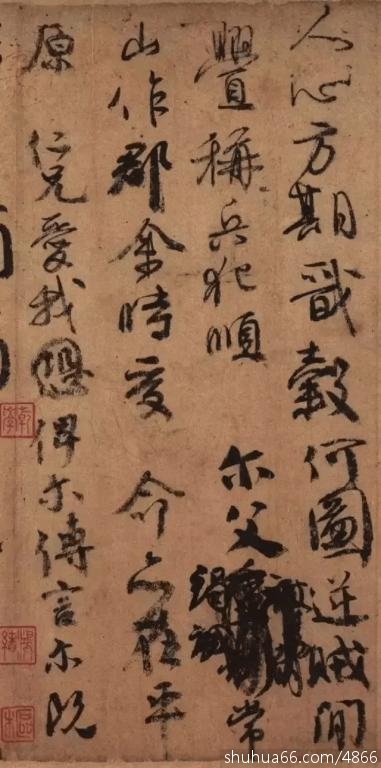 人心方期戩穀何圖逆賊閒
釁稱兵犯順 尔父竭誠常
山作郡余時受 命亦在平
原 仁兄愛我俾尔傳言尔既
shuhua66.com/4866